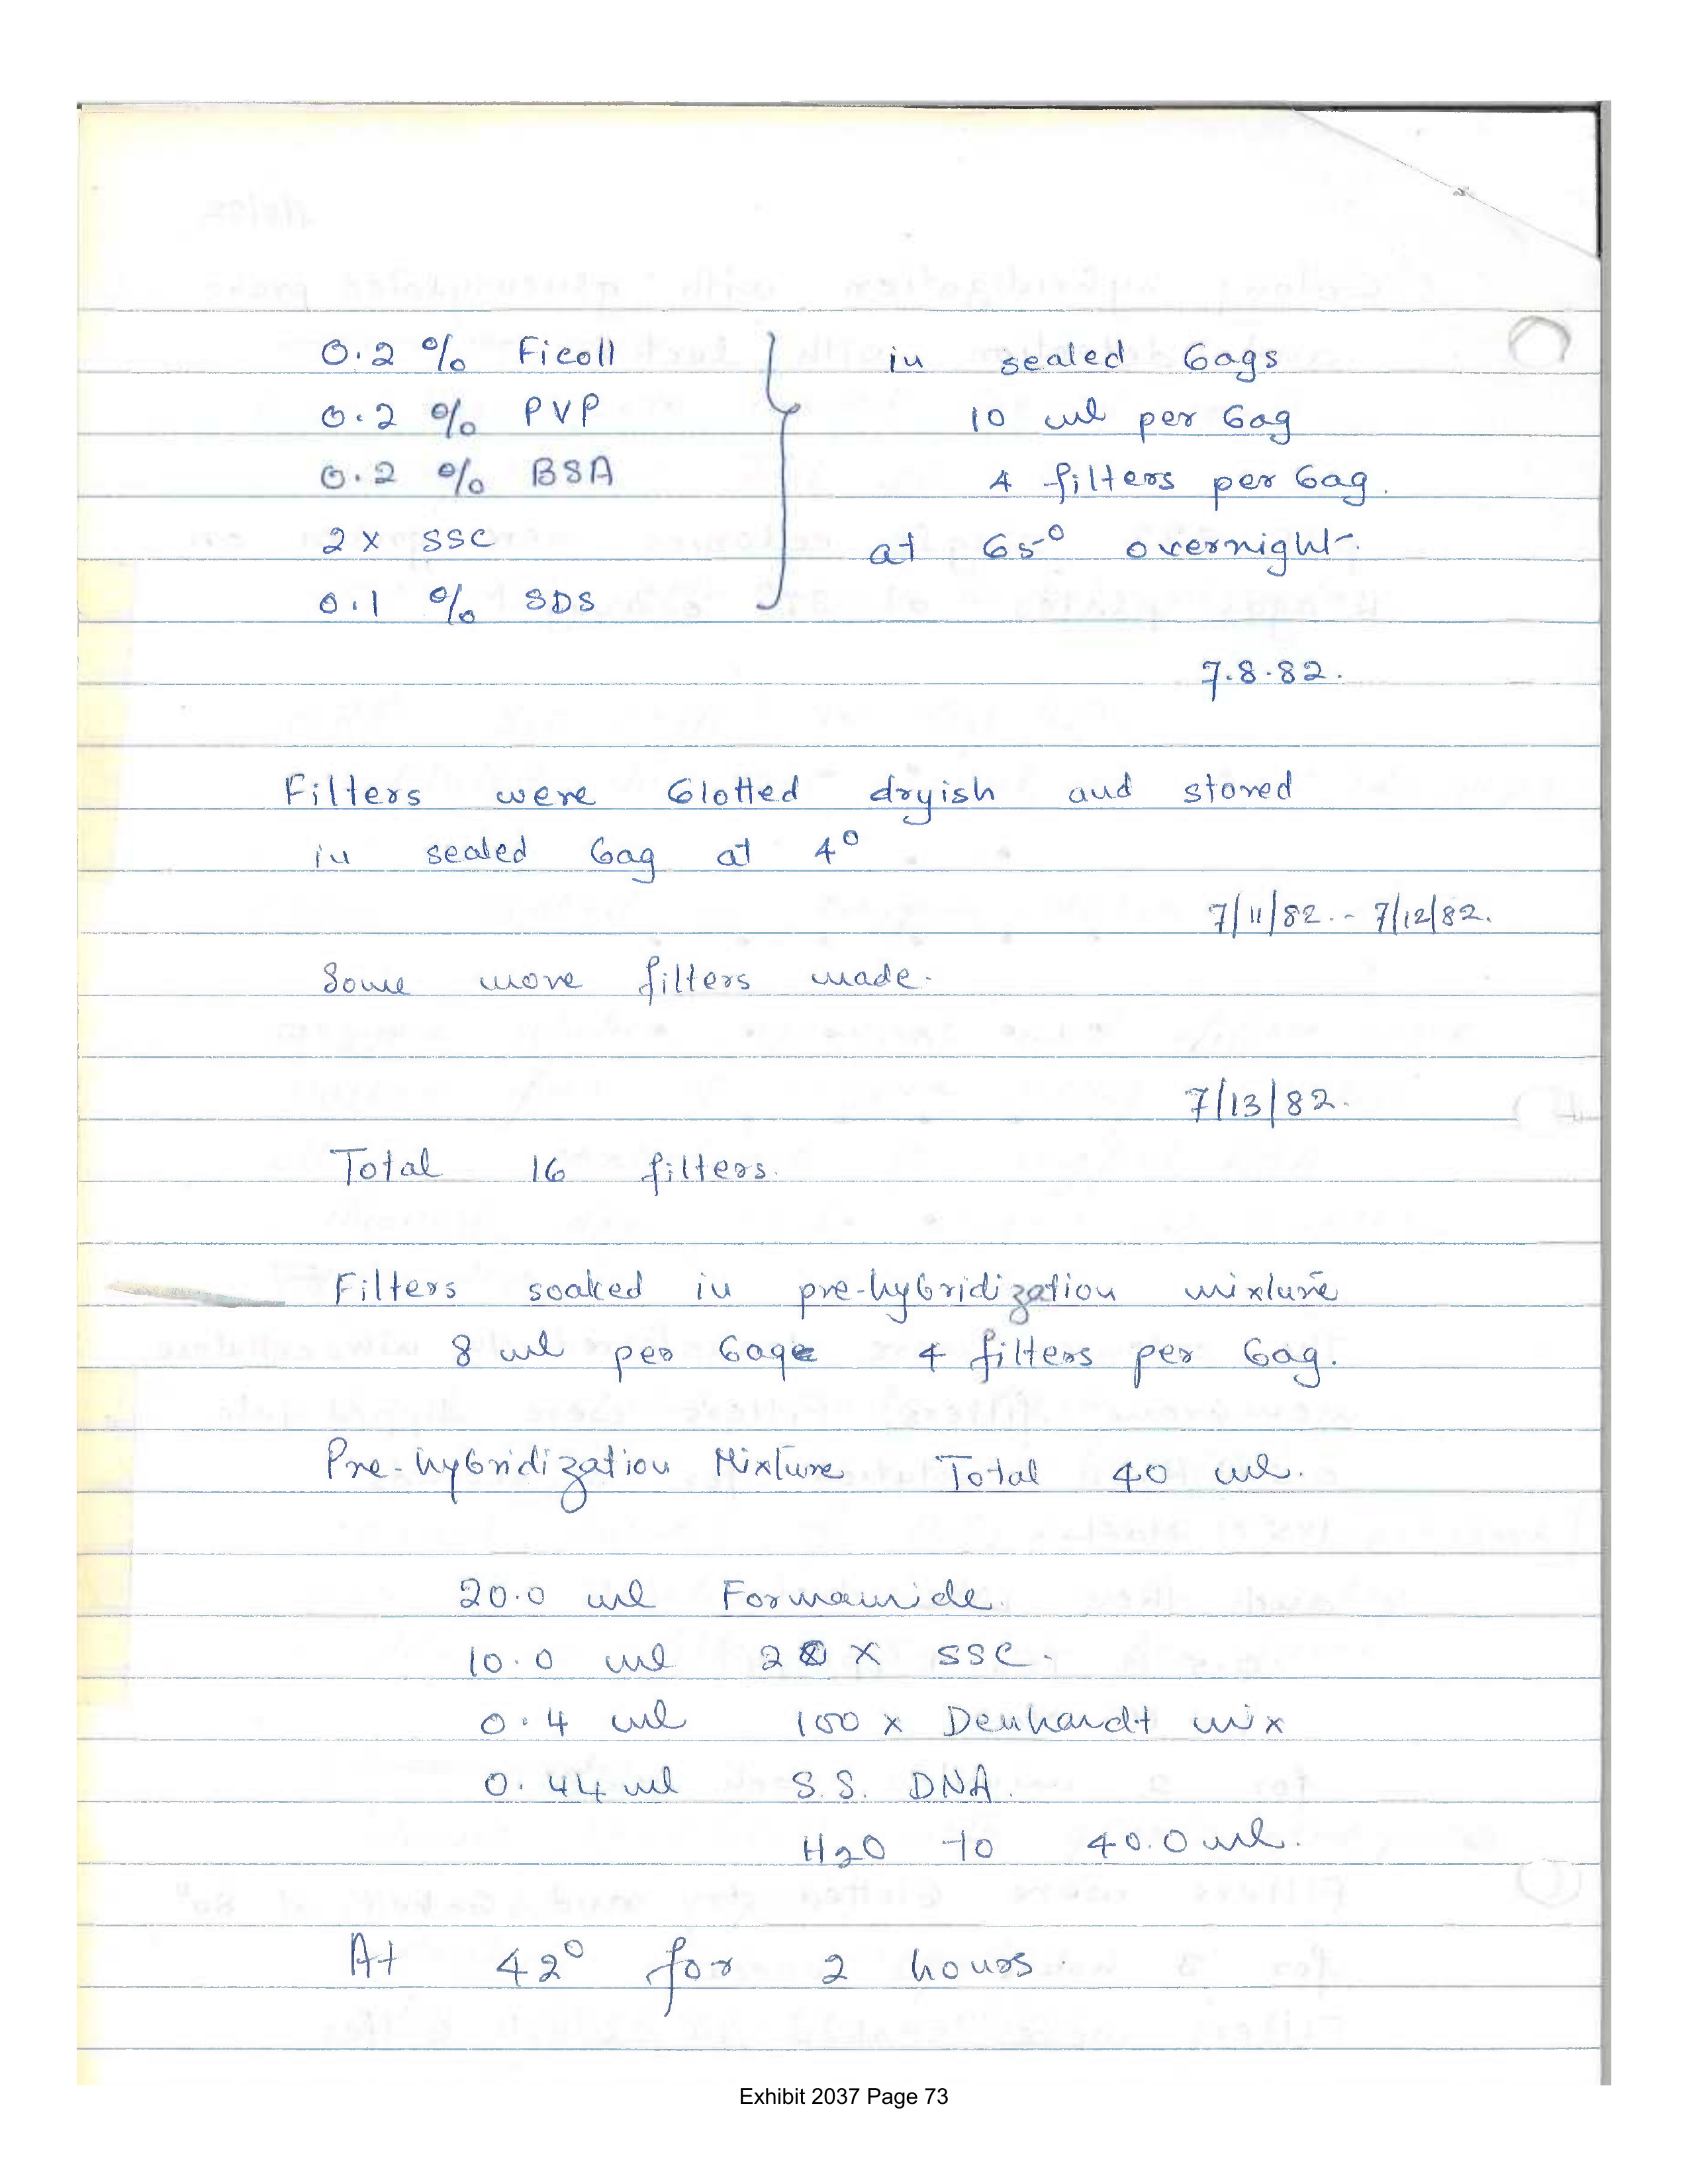 0.2 % Ficoll in sealed bags
0.2 % PVP 10 ml per bag
0.2 % BSA 4 filters per bag.
2 x SSC at 65° overnight.
0.1 % SDS
7.8.82.
Filters were blotted dryish and stored
in sealed bag at 4°
7/11/82. - 7/12/82.
Some more filters made.
7/13/82.
Total 16 filters.
Filters soaked in pre-hybridization mixture
8 ml per bag 4 filters per bag.
Pre-hybridization Mixture Total 40 ml.
20.0 ml Formamide.
10.0 ml 20 X SSC.
0.4 ml 100 x Denhardt mix
0.44 ml S.S. DNA.
H2O to 40.0 ml.
At 42° for 2 hours.
Exhibit 2037 Page 73